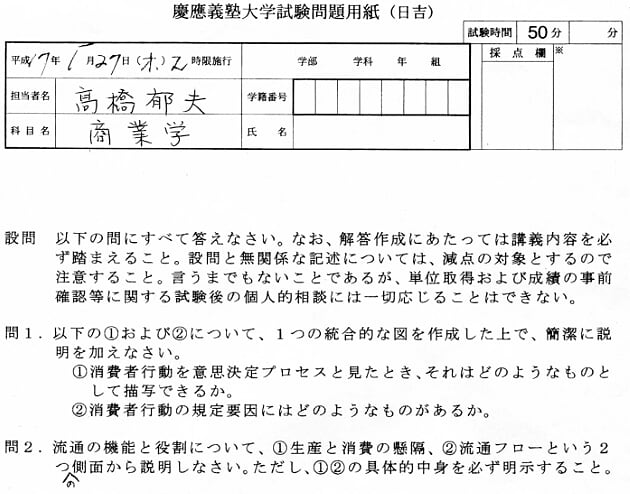 慶應義塾大学試験問題用紙（日吉）
試験時間 50分 分
平成17年1月27日（木）2時限施行 学部 学科 年 組 採点欄 ※
担当者名 高橋郁夫 学籍番号
科目名 商業学 氏名
設問 以下の問にすべて答えなさい。なお、解答作成にあたっては講義内容を必
ず踏まえること。設問と無関係な記述については、減点の対象とするので
注意すること。言うまでもないことであるが、単位取得および成績の事前
確認等に関する試験後の個人的相談には一切応じることはできない。
問１．以下の①および②について、１つの統合的な図を作成した上で、簡潔に説
明を加えなさい。
①消費者行動を意思決定プロセスと見たとき、それはどのようなものと
して描写できるか。
②消費者行動の規定要因にはどのようなものがあるか。
問２．流通の機能と役割について、①生産と消費の懸隔、②流通フローという２
つの側面から説明しなさい。ただし、①②の具体的中身を必ず明示すること。